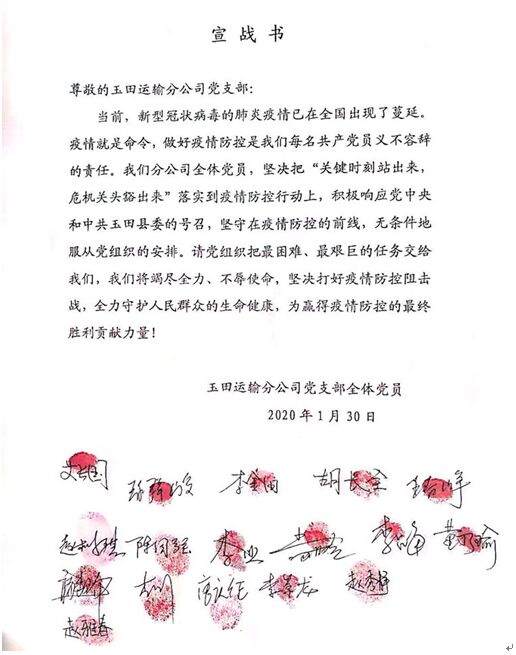 宣战书
尊敬的玉田运输分公司党支部:
当前，新型冠状病毒的肺炎疫情已在全国出现了蔓延。
疫情就是命令，做好疫情防控是我们每名共产党员义不容辞
的责任。我们分公司全体党员，坚决把“关键时刻站出来，
危机关头豁出来”落实到疫情防控行动上，积极响应党中央
和中共玉田县委的号召，坚守在疫情防控的前线，无条件地
服从党组织的安排。请党组织把最困难、最艰巨的任务交给
我们，我们将竭尽全力、不辱使命，坚决打好疫情防控阻击
战，全力守护人民群众的生命健康，为赢得疫情防控的最终
胜利贡献力量！
玉田运输分公司党支部全体党员
2020年1月30日
胡长全
陈国强 李业 李峰
李军龙 赵秀静
赵雅春